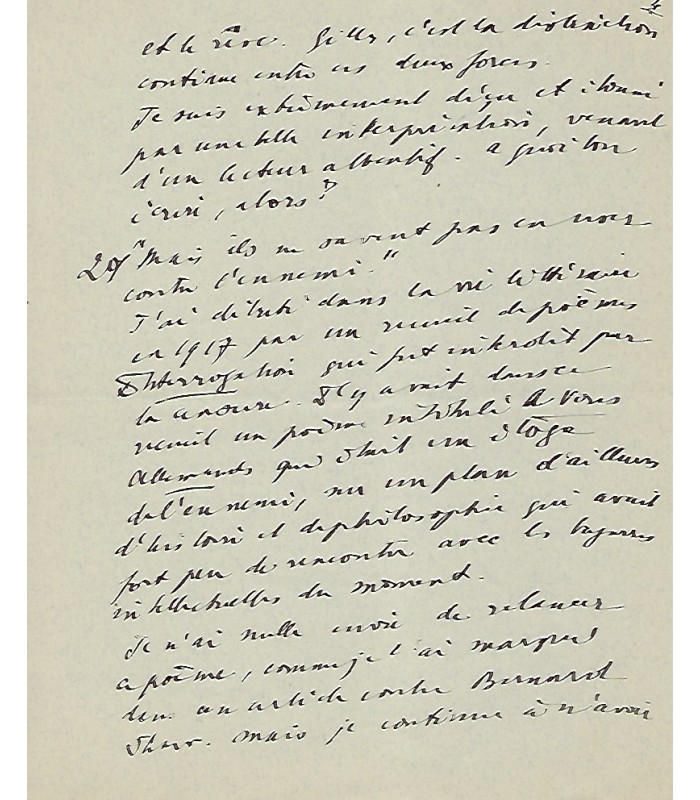 4
et le rêve. Gilles, c'est la distinction
continue entre ces deux forces.
Je suis extrêmement déçu et étonné
par une telle interprétation, venant
d'un lecteur attentif. A quoi bon
écrire, alors ?
2°/ "Mais ils ne savent pas en nous
contre l'ennemi."
J'ai débuté dans la vie littéraire
en 1917 par un recueil de poèmes
Interrogation qui fut interdit par
la censure. Il y avait dans ce
recueil un poème intitulé A vous
Allemands qui était un éloge
de l'ennemi, sur un plan d'ailleurs
d'histoire et de philosophie qui avait
fort peu de rencontre avec les bagarres
intellectuelles du moment.
Je n'ai nulle envie de relancer
ce poème, comme je l'ai marqué
dans un article contre Bernard
Shaw. Mais je continue à n'avoir